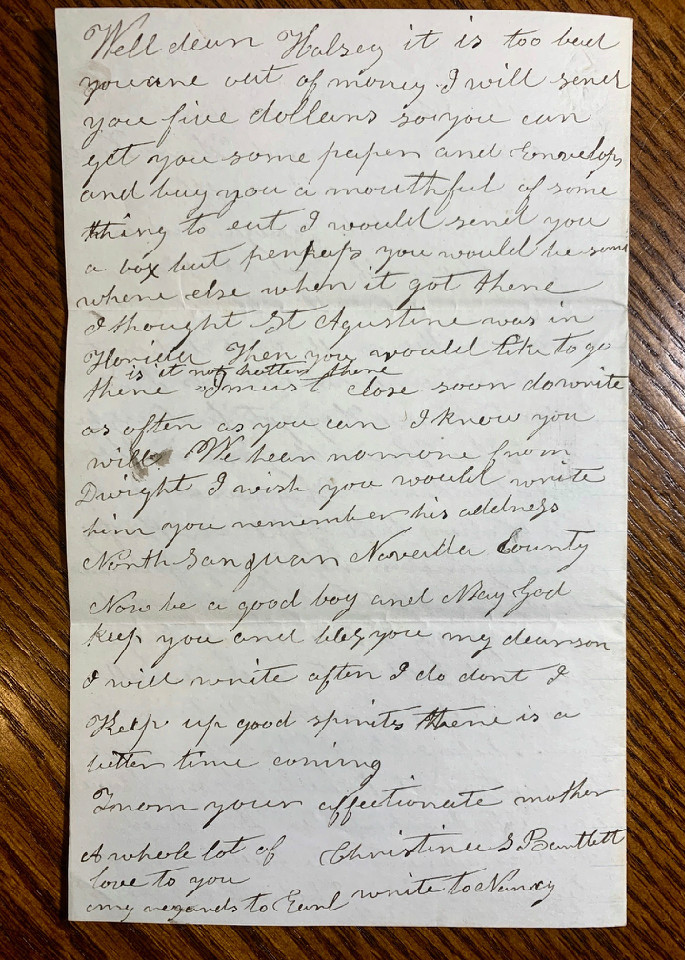 Well dear Halsey it is too bad
you are out of money. I will send
you five dollars so you can
get you some paper and Envelops
and buy you a mouthful of some
thing to eat I would send you
a box but perhaps you would be some
where else when it got there
I thought St Agustine was in
Florida Then you would like to go
is it not hotter there
there I must close soon do write
as often as you can I know you
will We hear no more from
Dwight I wish you would write
him you remember his address
North San Juan Nevada County
Now be a good boy and May God
keep you and bless you my dear son
I will write often I do dont I
Keep up good spirits there is a
better time coming
From your affectionate mother
Christinee S Bartlett
A whole lot of
love to you
my regards to Earl write to Nancy